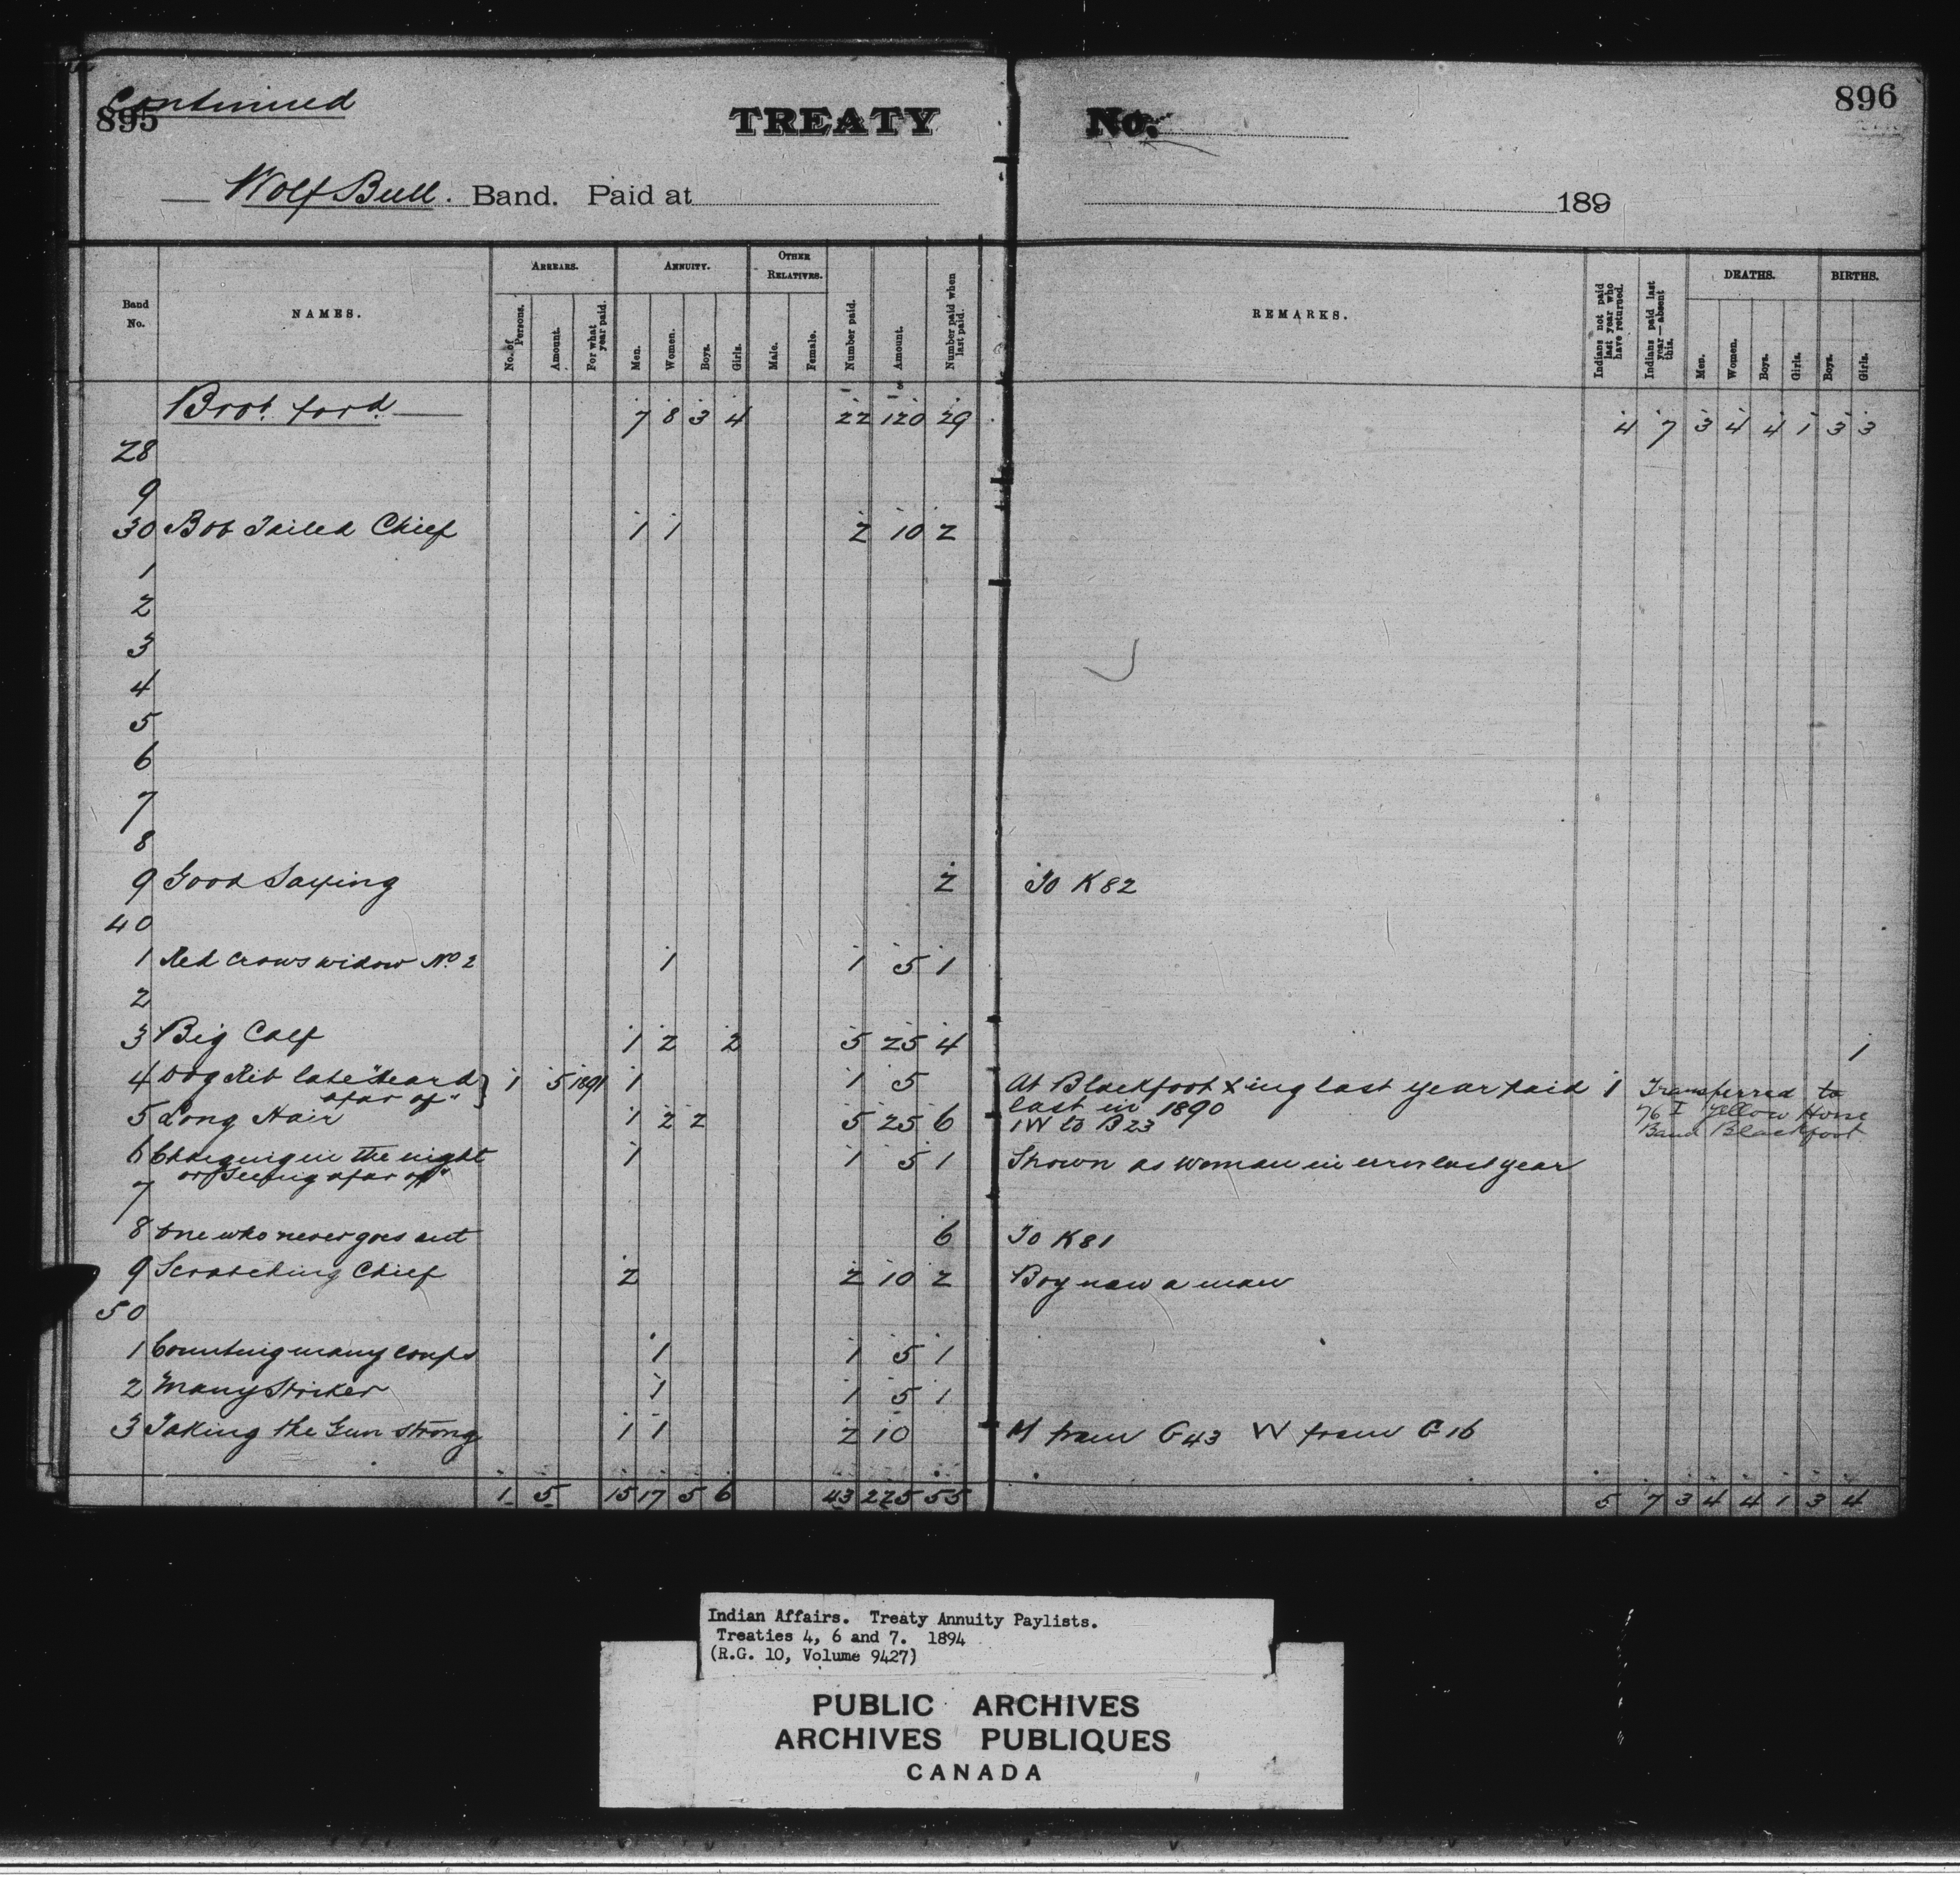 Continued
895
TREATY No.
896
Wolf Bull. Band. Paid at 189
Band No.
NAMES.
ARREARS.
No. of Persons.
Amount.
For what year paid.
ANNUITY.
Men.
Women.
Boys.
Girls.
OTHER RELATIVES.
Male.
Female.
Number paid.
Amount.
Number paid when last paid.
REMARKS.
Indians not paid last year who have returned.
Indians paid last year—absent this.
DEATHS.
Men.
Women.
Boys.
Girls.
BIRTHS.
Boys.
Girls.
Brot. ford. 7 8 3 4 22 120 29 4 7 3 4 4 1 3 3
28
9
30 Bob Tailed Chief 1 1 2 10 2
1
2
3
4
5
6
7
8
9 Good Saying 2 To K 82
40
1 Red Crows widow No 2 1 1 5 1
2
3 Big Calf 1 2 2 5 25 4 1
4 Dog Rib late "Heard afar of" 1 5 1891 1 1 5 At Blackfoot Xing last year paid last in 1890 1 Transferred to 76 I Yellow Horse Band Blackfoot
5 Long Hair 1 2 2 5 25 6 1W to B23
6 Charging in the night or "Seeing afar off" 1 1 5 1 Shown as woman in error last year
7
8 One who never goes out 6 To K81
9 Scratching Chief 2 2 10 2 Boy now a man
50
1 Counting many coups 1 1 5 1
2 Many Striker 1 1 5 1
3 Taking the Gun strong 1 1 2 10 M from G43 W from G16
1 5 15 17 5 6 43 225 55 5 7 3 4 4 1 3 4
Indian Affairs. Treaty Annuity Paylists.
Treaties 4, 6 and 7. 1894
(R.G. 10, Volume 9427)
PUBLIC ARCHIVES
ARCHIVES PUBLIQUES
CANADA